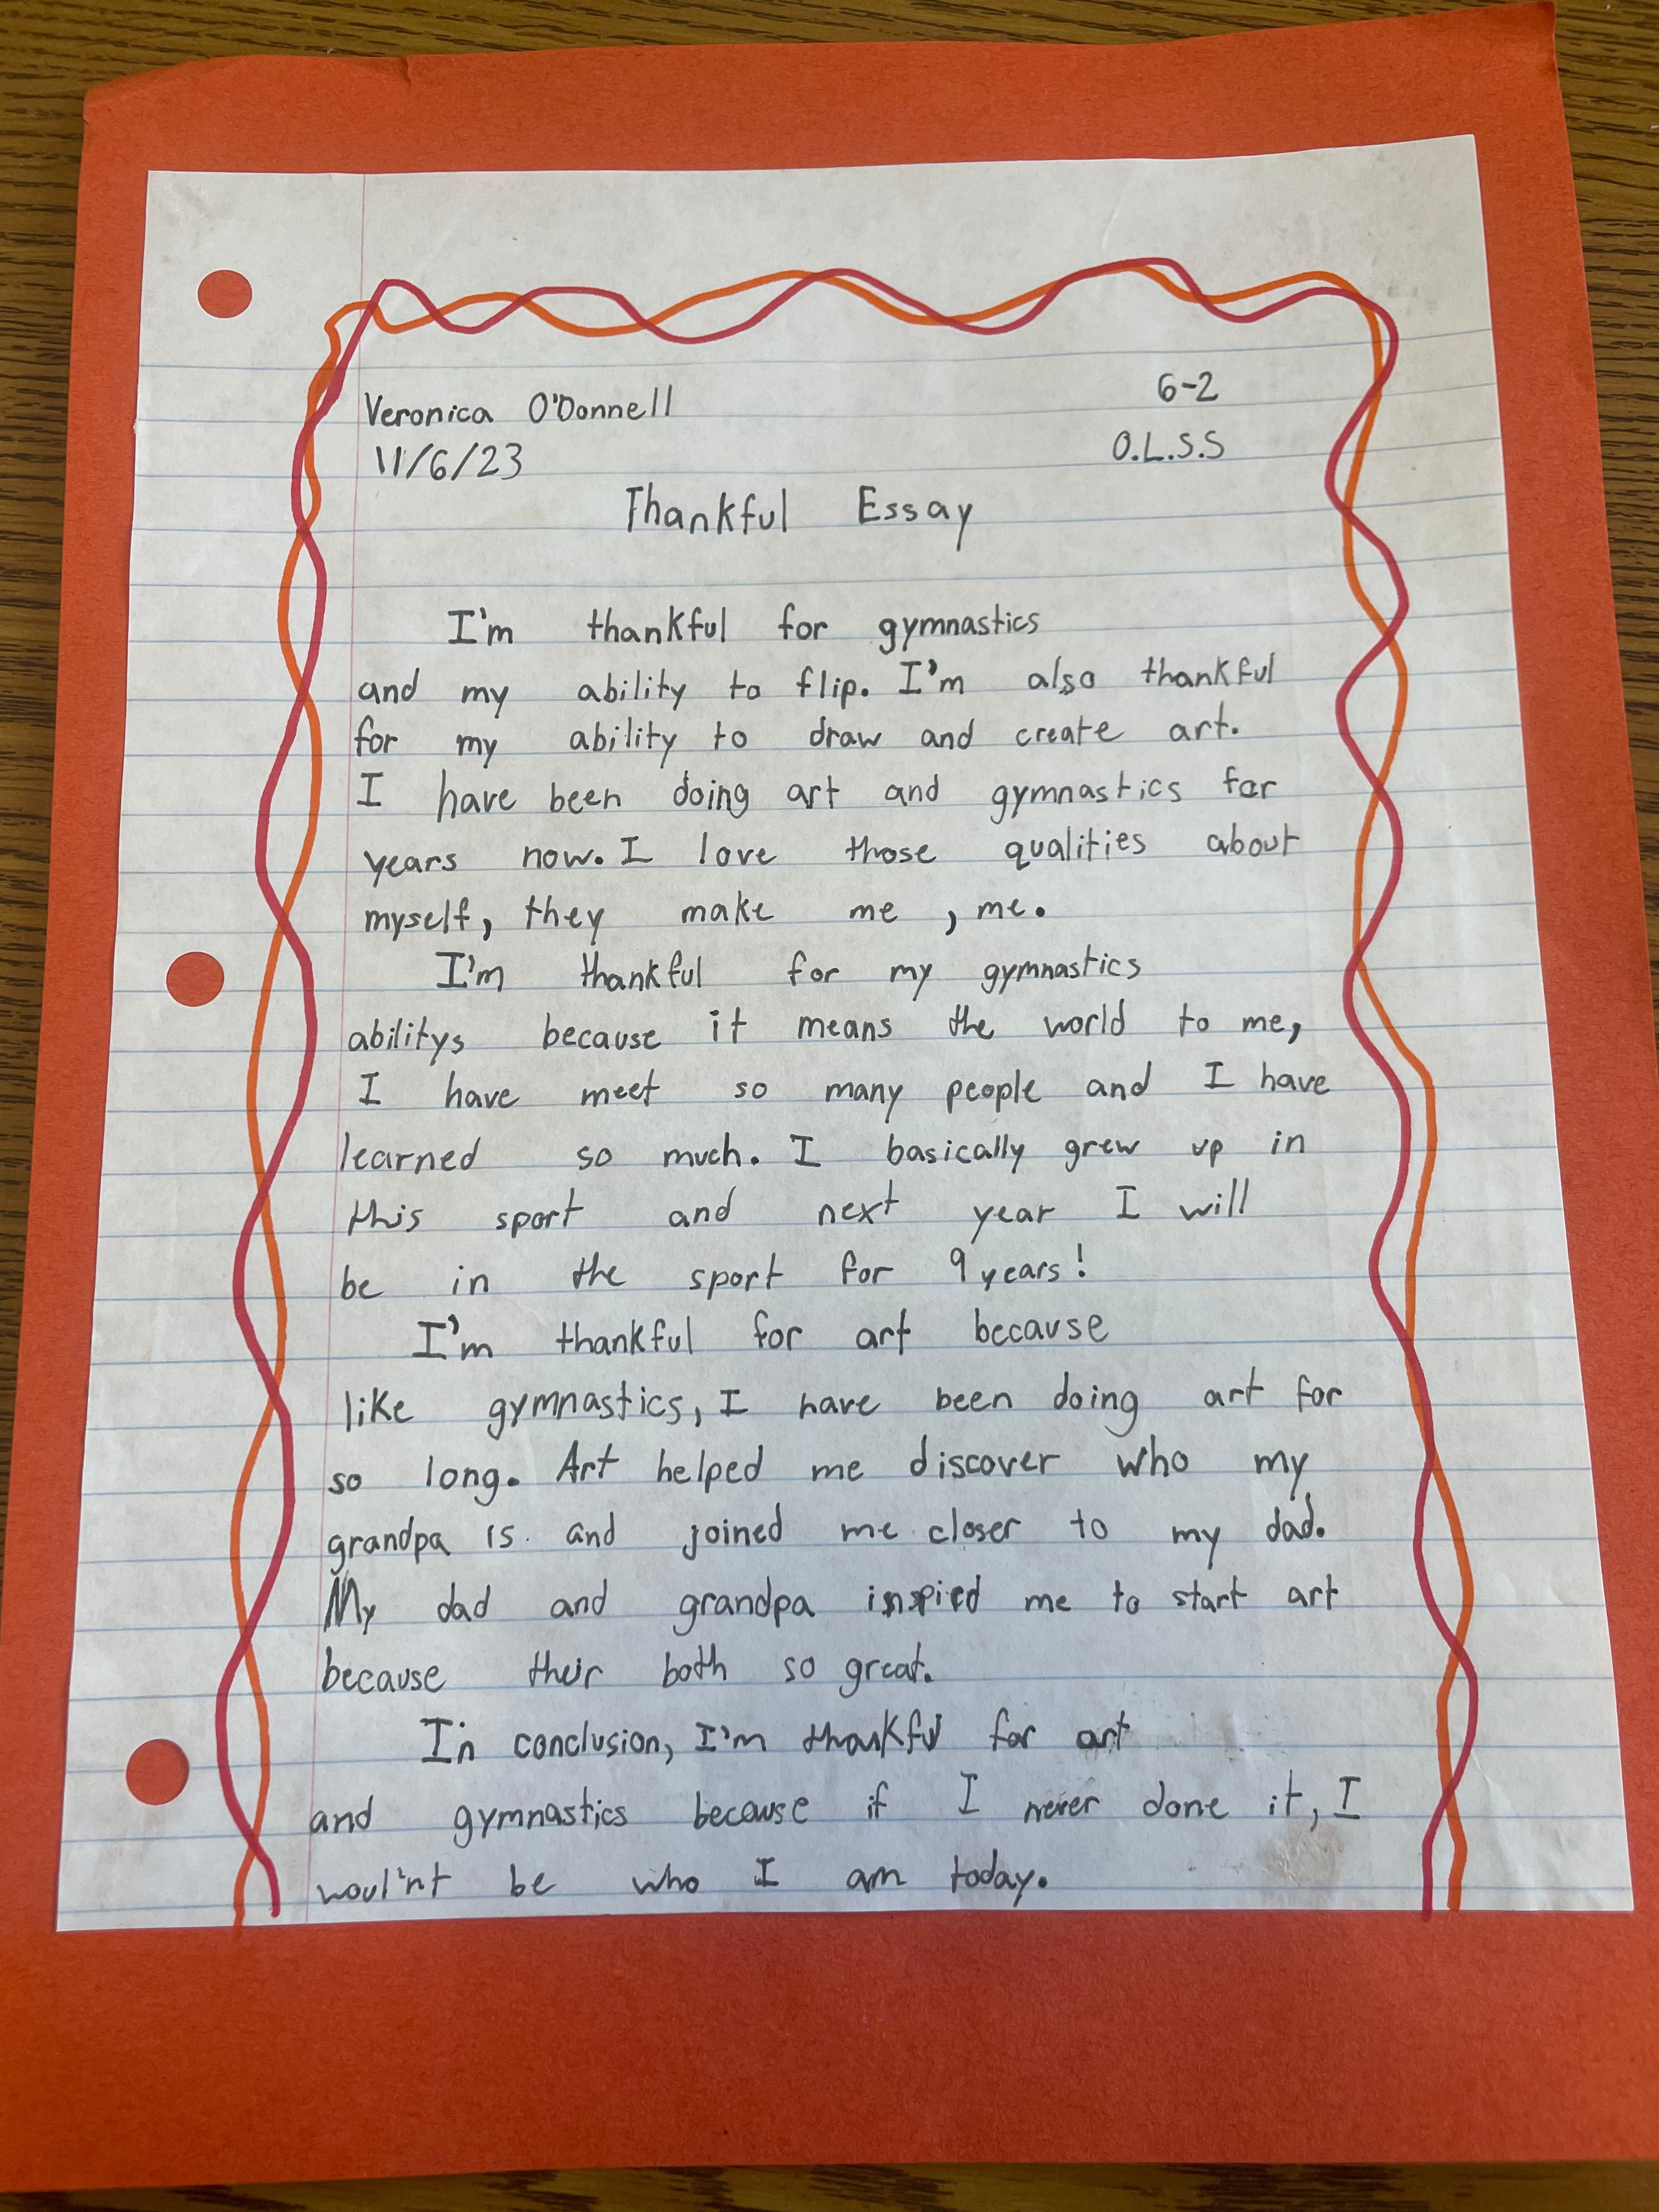 Veronica O'Donnell 6-2
11/6/23 O.L.S.S
Thankful Essay
I'm thankful for gymnastics
and my ability to flip. I'm also thankful
for my ability to draw and create art.
I have been doing art and gymnastics for
years now. I love those qualities about
myself, they make me, me.
I'm thankful for my gymnastics
abilitys because it means the world to me,
I have meet so many people and I have
learned so much. I basically grew up in
this sport and next year I will
be in the sport for 9 years!
I'm thankful for art because
like gymnastics, I have been doing art for
so long. Art helped me discover who my
grandpa is and joined me closer to my dad.
My dad and grandpa inspied me to start art
because their both so great.
In conclusion, I'm thankful for art
and gymnastics because if I never done it, I
woul'nt be who I am today.